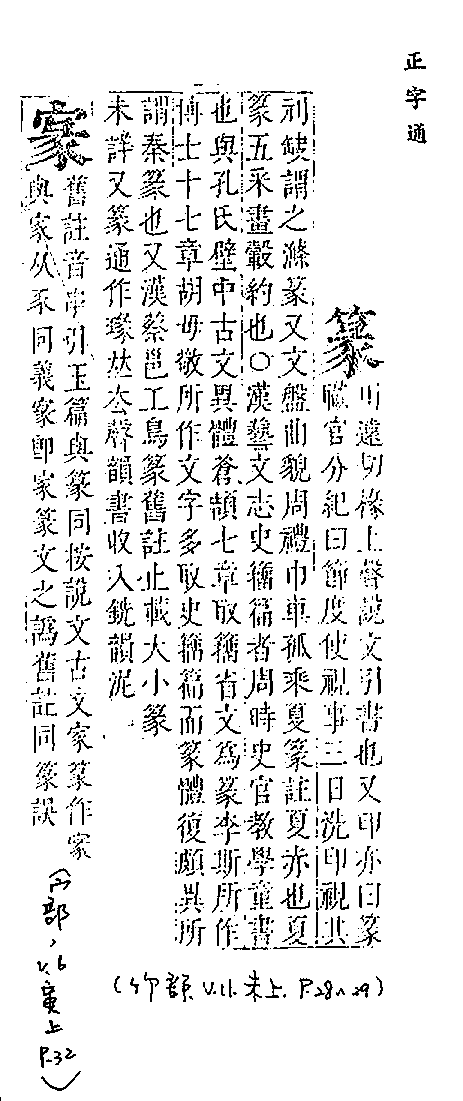 正字通
篆
川遠切椽上聲說文引書也又印亦曰篆
職官分紀曰節度使視事三日洗印視其
刓缺謂之滌篆又文盤曲貌周禮巾車孤乘夏篆註夏赤也夏
篆五采畫轂約也○漢藝文志史籀篇者周時史官教學童書
也與孔氏壁中古文異體蒼頡七章取籀省文爲篆李斯所作
博士十七章胡毋敬所作文字多取史籀篇而篆體復頗異所
謂秦篆也又漢蔡邕工鳥篆舊註止載大小篆
未詳又篆通作瑑𠀤去聲韻書收入銑韻泥
舊註音串引玉篇與篆同按說文古文家篆作家
與家从豕同義家卽家篆文之譌舊註同篆誤
(竹部 V.11. 未上. P.28~29)
(宀部, V.6 寅上 P.32)